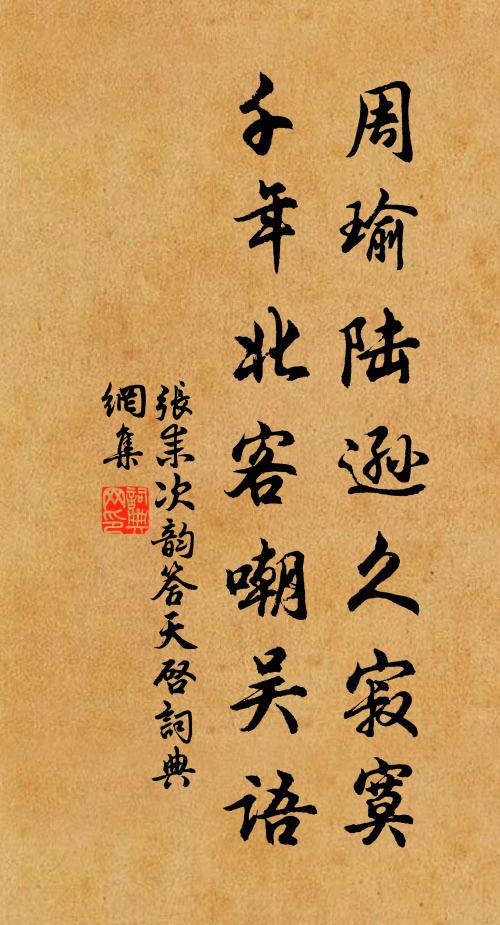 周瑜陆逊久寂寞
千年北客嘲吴语
張耒次韵答天启詞典
網集
詞典网印